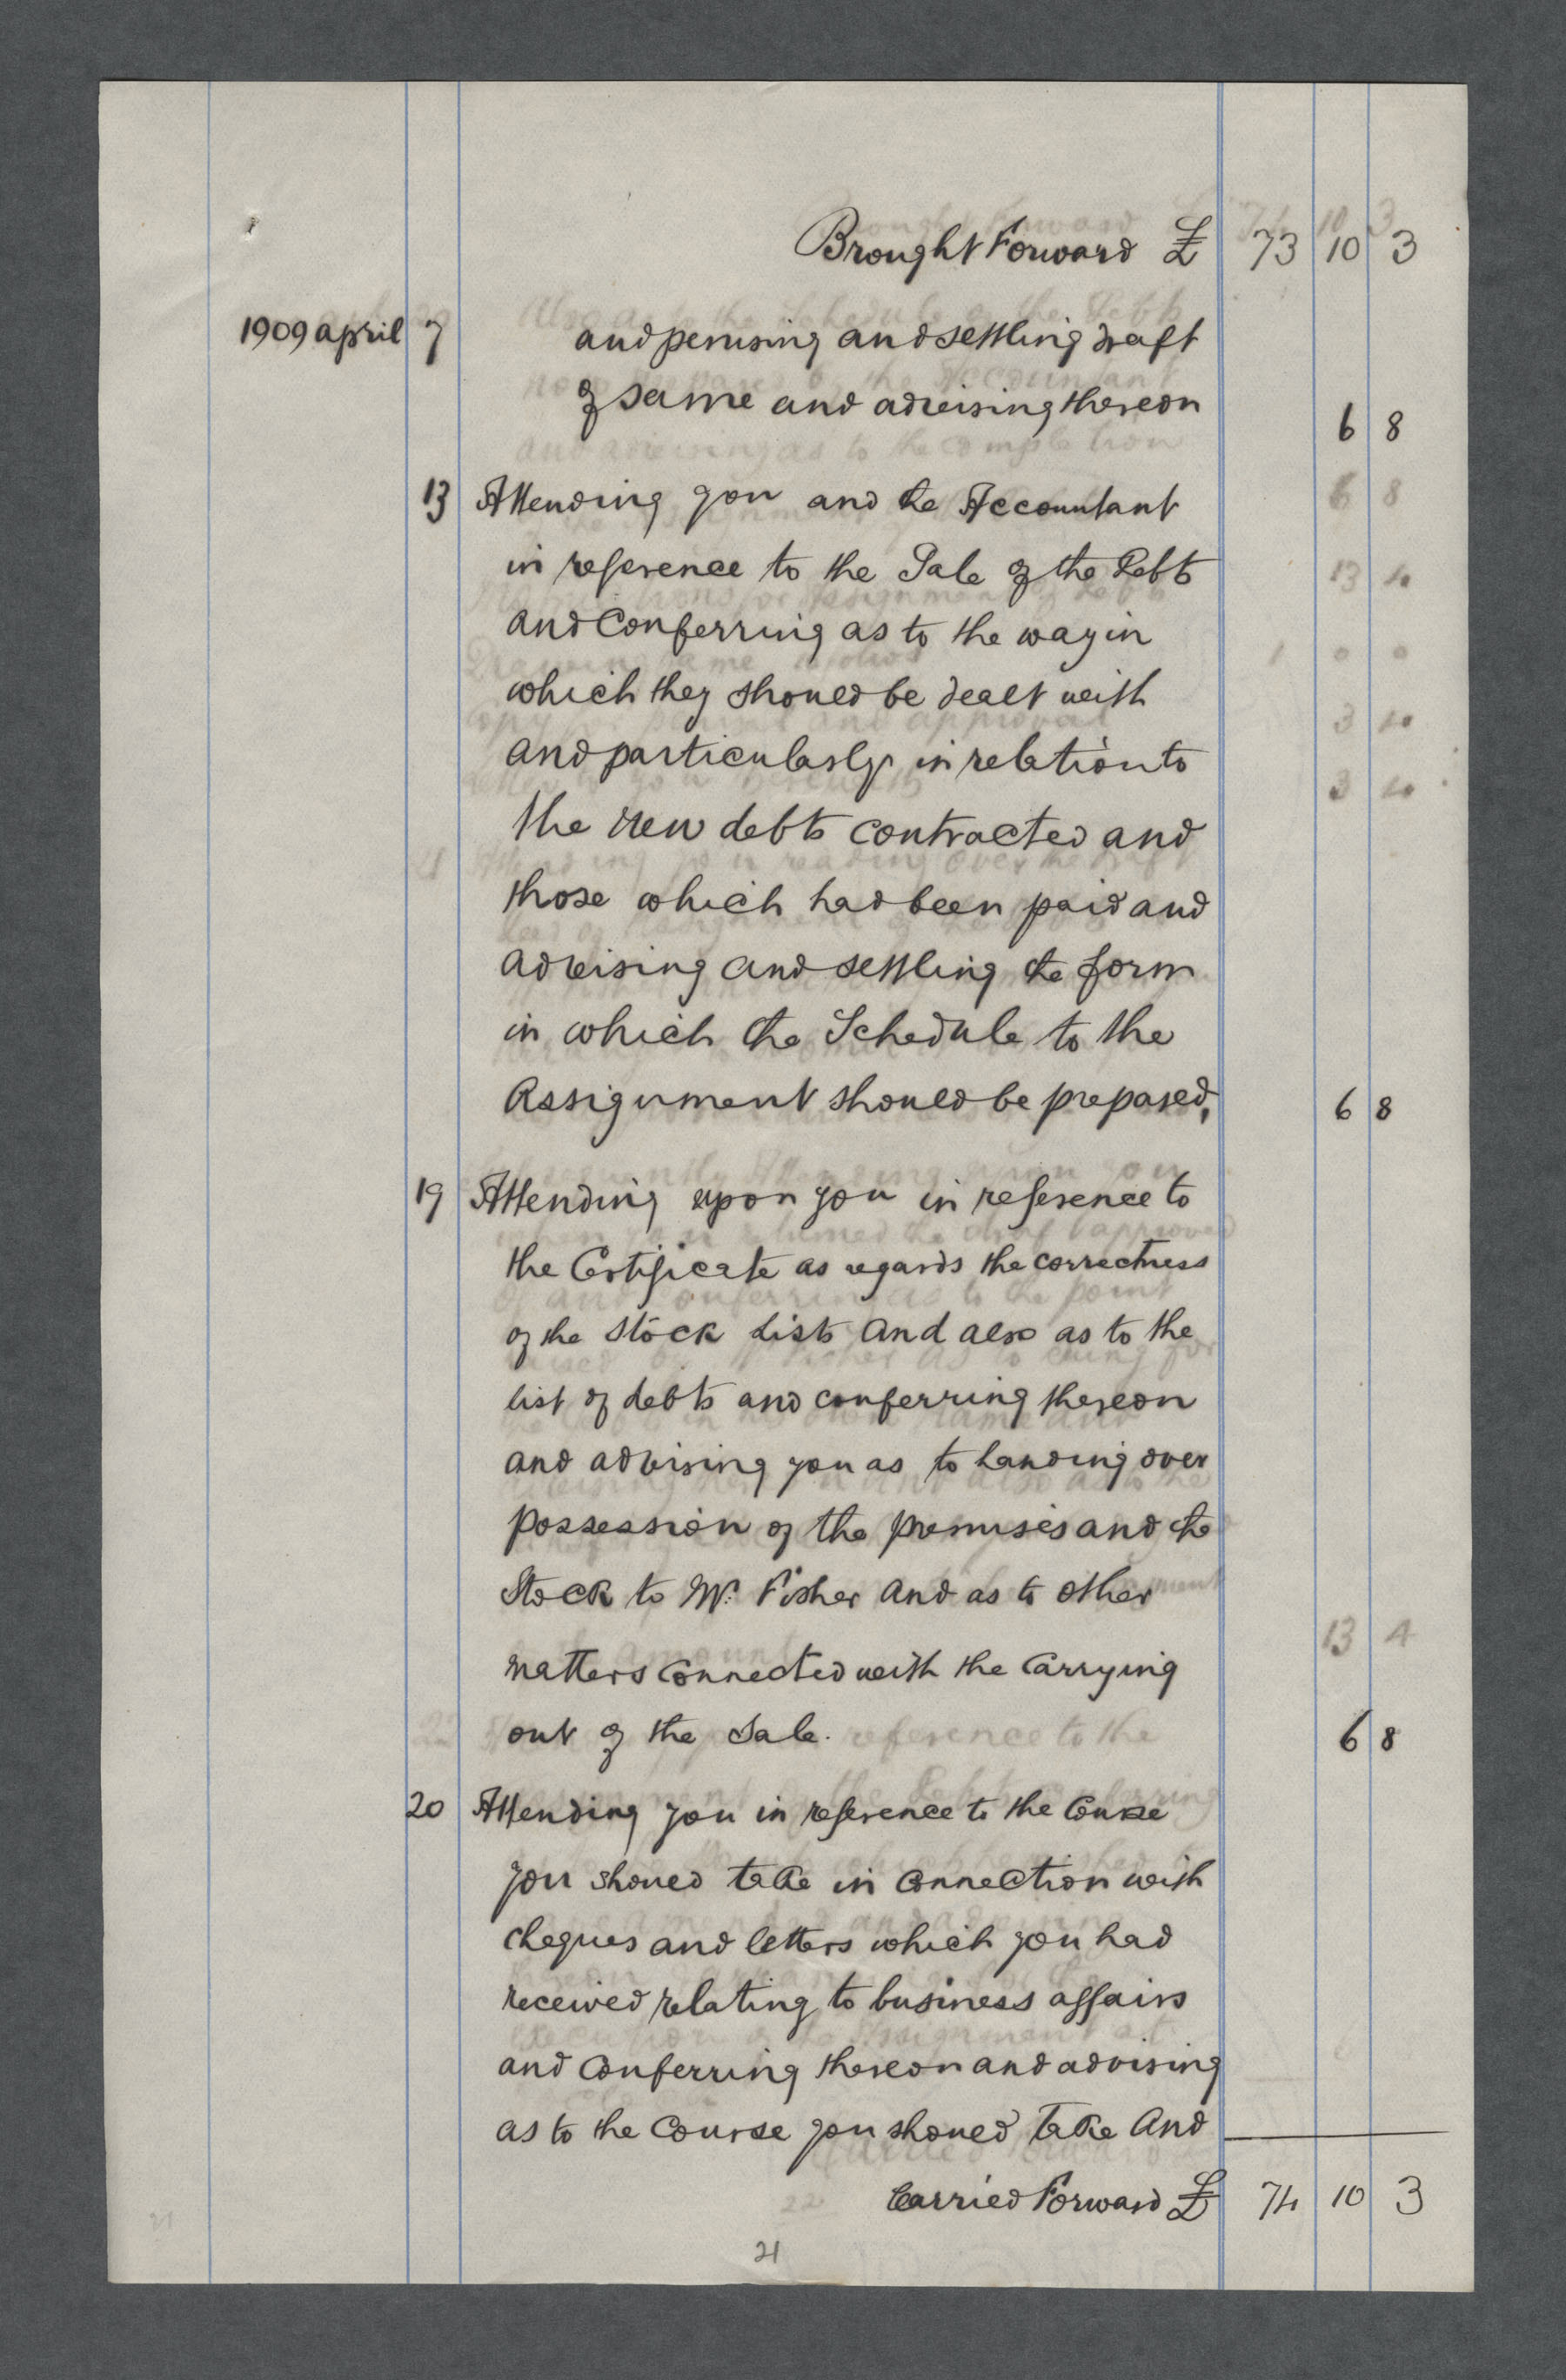 Brought Forward £ 73 10 3
1909 april 7 and perusing and settling draft
of same and advising thereon 6 8
13 Attending you and the Accountant
in reference to the Sale of the Debts
and Conferring as to the way in
which they should be dealt with
and particularly in relation to
the new debts contracted and
those which had been paid and
advising and settling the form
in which the Schedule to the
Assignment should be prepared, 6 8
19 Attending upon you in reference to
the Certificate as regards the correctness
of the Stock Lists and also as to the
list of debts and conferring thereon
and advising you as to handing over
possession of the premises and the
Stock to Mr. Fisher and as to other
matters connected with the Carrying
out of the Sale. 6 8
20 Attending you in reference to the Course
you should take in Connection with
cheques and letters which you had
received relating to business affairs
and Conferring thereon and advising
as to the Course you should take and
Carried Forward £ 74 10 3
21